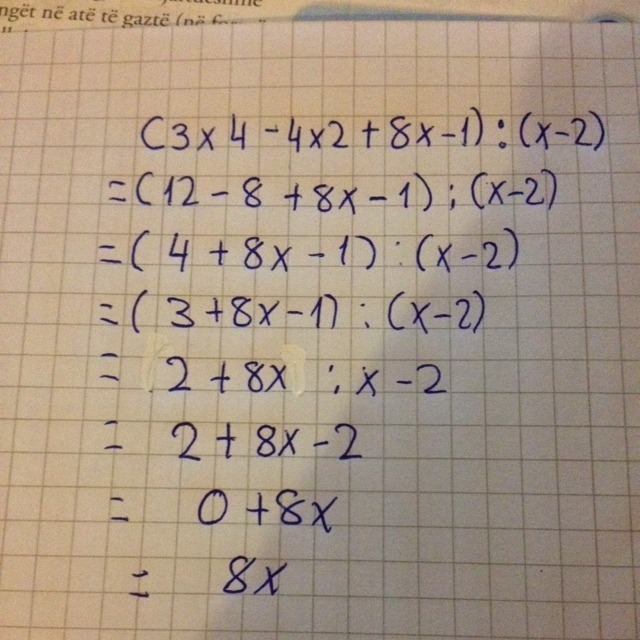 ngët në atë të gaztë (në
(3x4-4x2+8x-1):(x-2)
=(12-8+8x-1);(x-2)
=(4+8x-1):(x-2)
=(3+8x-1):(x-2)
= (2+8x) : x-2
= 2+8x-2
= 0+8x
= 8x